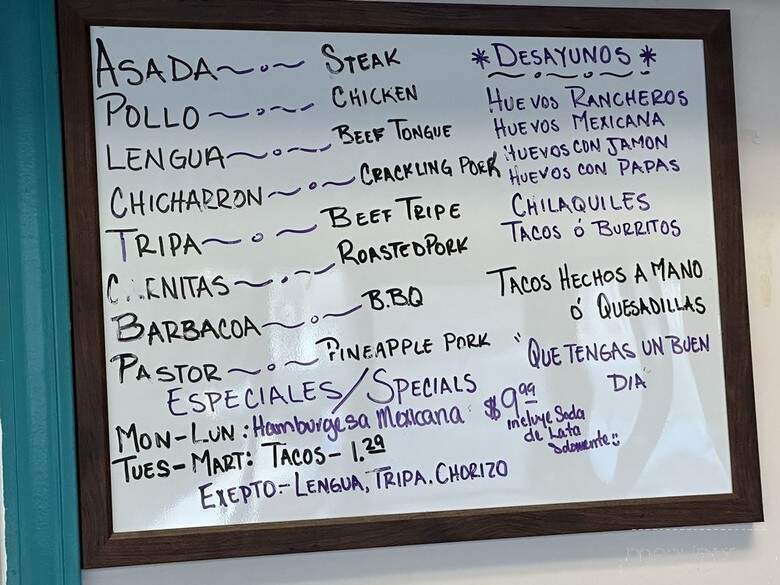 ASADA STEAK
POLLO CHICKEN
LENGUA BEEF TONGUE
CHICHARRON CRACKLING PORK
TRIPA BEEF TRIPE
C ENITAS ROASTED PORK
BARBACOA B.BQ
PASTOR PINEAPPLE PORK
ESPECIALES/SPECIALS
MON-LUN: Hamburgesa Mexicana $9.99
incluye Soda
de Lata
Solomente
TUES-MART: TACOS - 1.29
EXEPTO:- LENGUA, TRIPA. CHORIZO
* DESAYUNOS *
HUEVOS RANCHEROS
HUEVOS MEXICANA
HUEVOS CON JAMON
HUEVOS CON PAPAS
CHILAQUILES
TACOS Ó BURRITOS
TACOS HECHOS A MANO
Ó QUESADILLAS
"QUE TENGAS UN BUEN
DIA